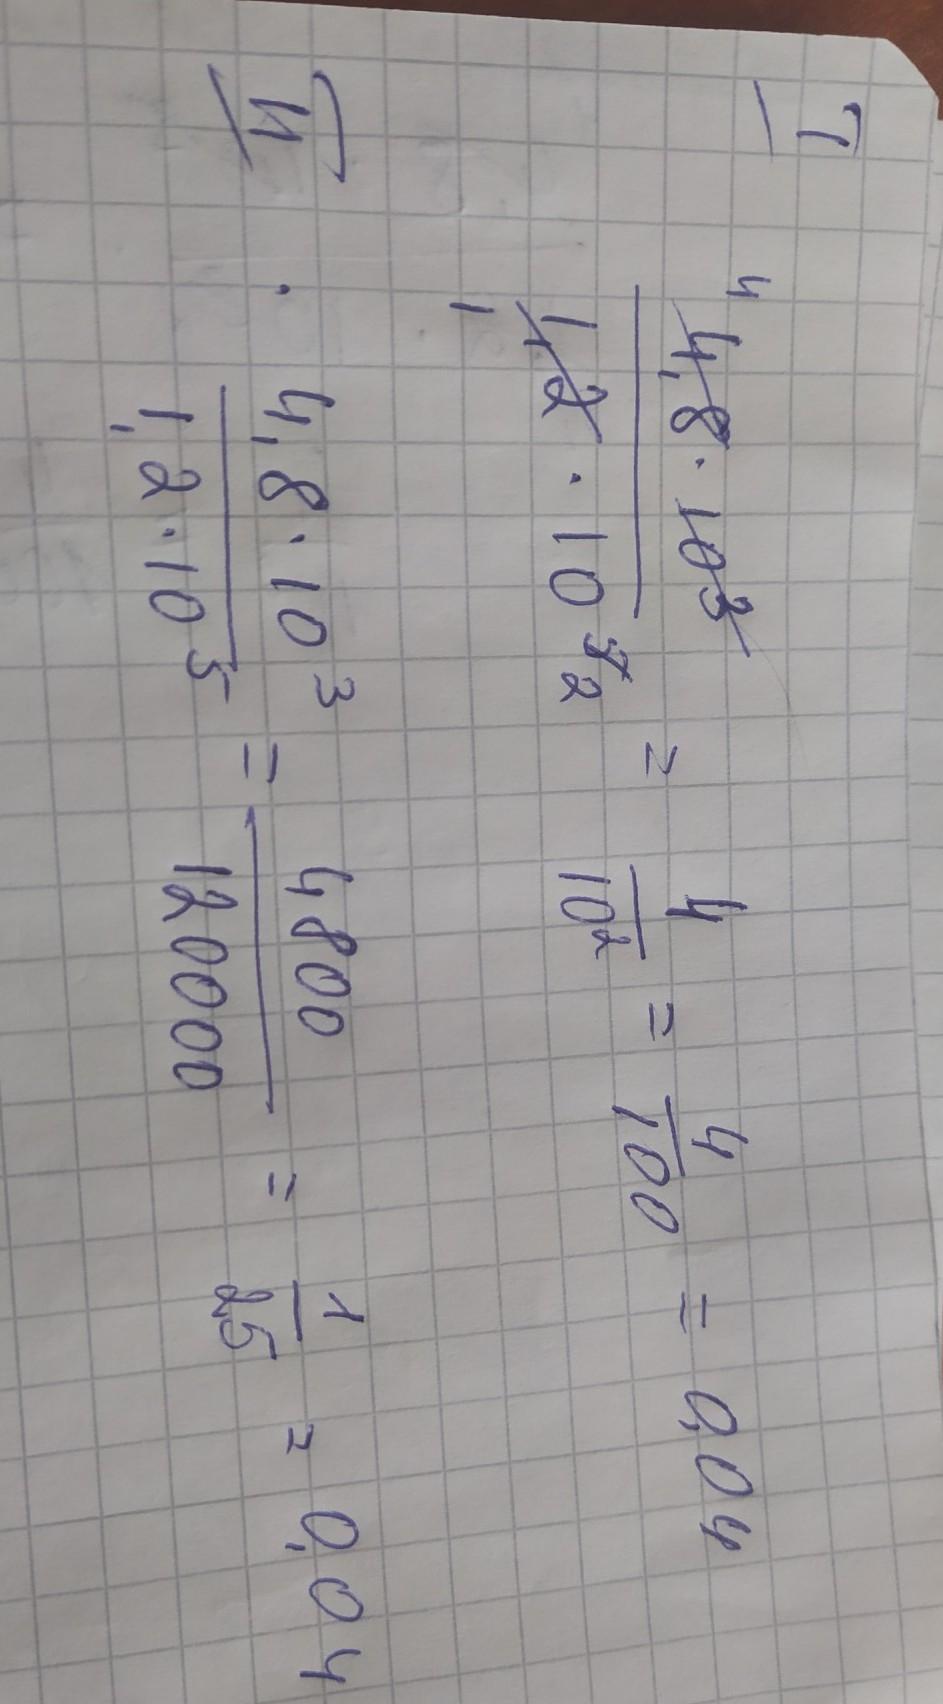 I
4 4,8 · 10³ / 1,2 · 10⁵ 2 = 4/10² = 4/100 = 0,04
1
II
· 4,8 · 10³ / 1,2 · 10⁵ = 4800 / 120000 = 1/25 = 0,04